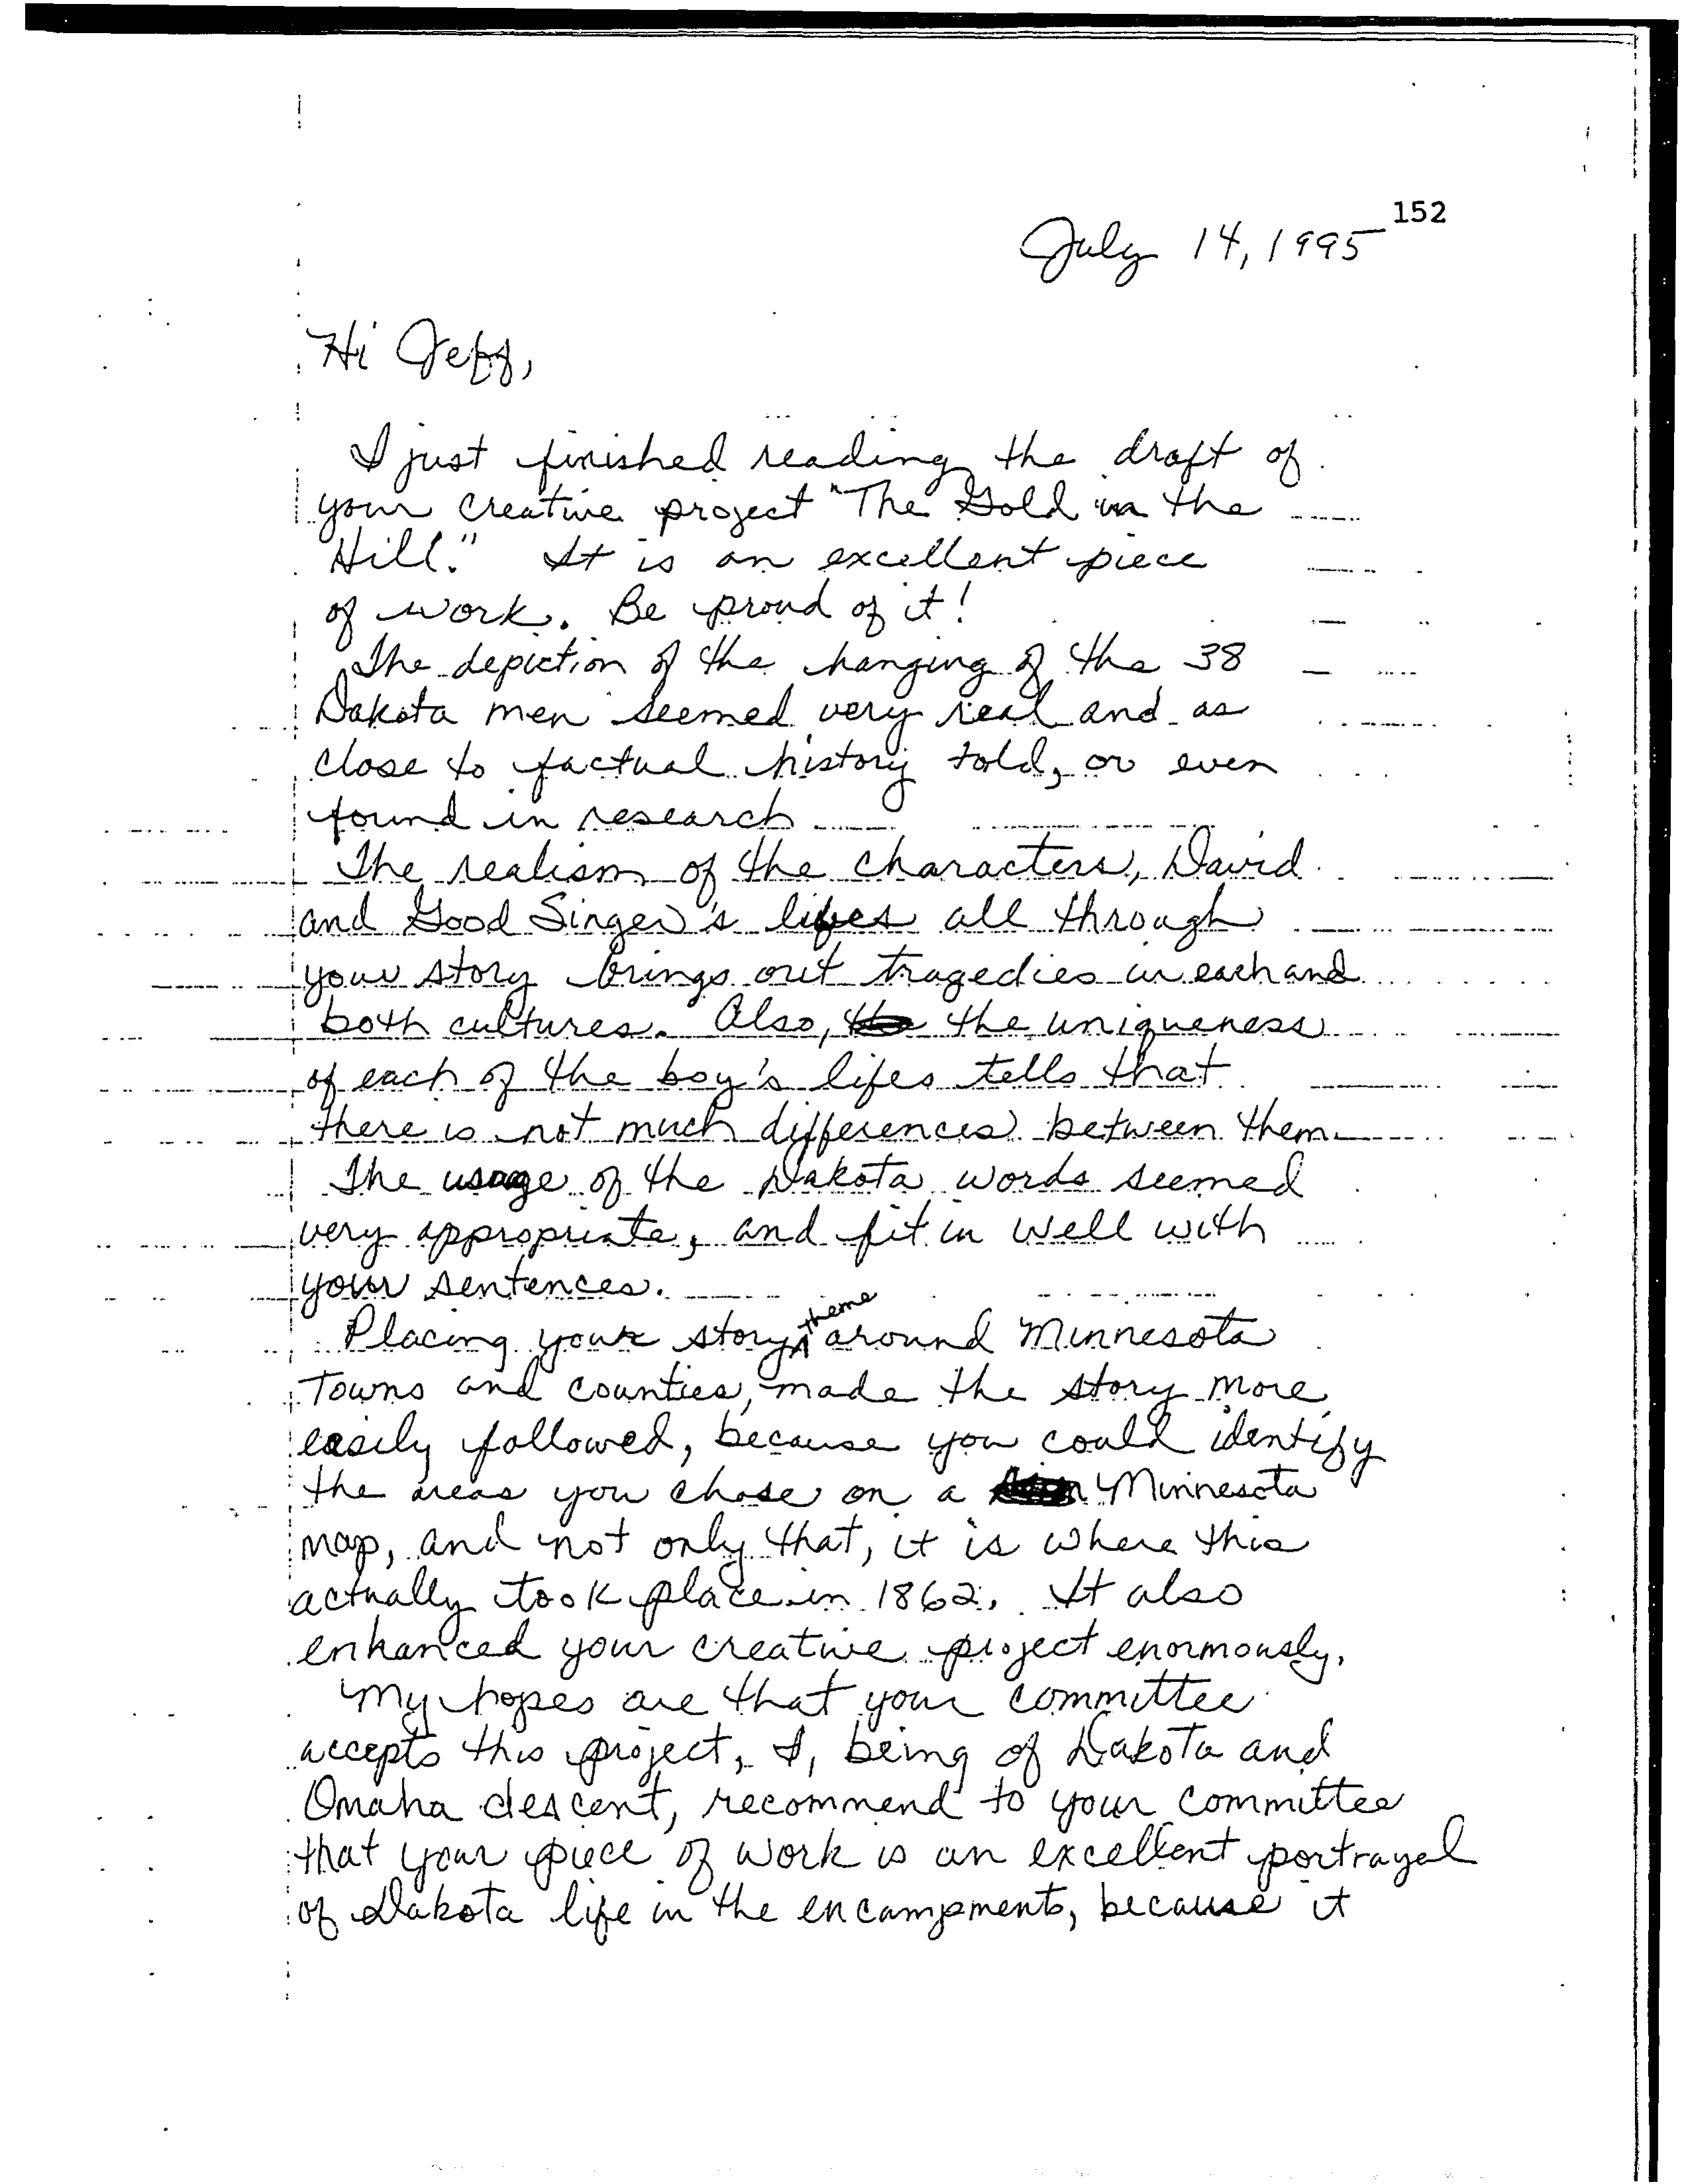 152
July 14, 1995
Hi Jeff,
I just finished reading the draft of
your creative project "The Gold in the
Hill." It is an excellent piece
of work. Be proud of it!
The depiction of the hanging of the 38
Dakota men seemed very real and as
close to factual history told, or even
found in research
The realism of the characters, David
and Good Singer's lifes all through
your story brings out tragedies in each and
both cultures. Also, the the uniqueness
of each of the boy's lifes tells that
there is not much differences between them.
The usage of the Dakota words seemed
very appropriate, and fit in well with
your sentences.
Placing your story theme around Minnesota
Towns and counties, made the story more
easily followed, because you could identify
the areas you chose on a Minnesota
map, and not only that, it is where this
actually took place in 1862. It also
enhanced your creative project enormously.
My hopes are that your committee
accepts this project, I, being of Dakota and
Omaha descent, recommend to your committee
that your piece of work is an excellent portrayal
of Dakota life in the encampments, because it